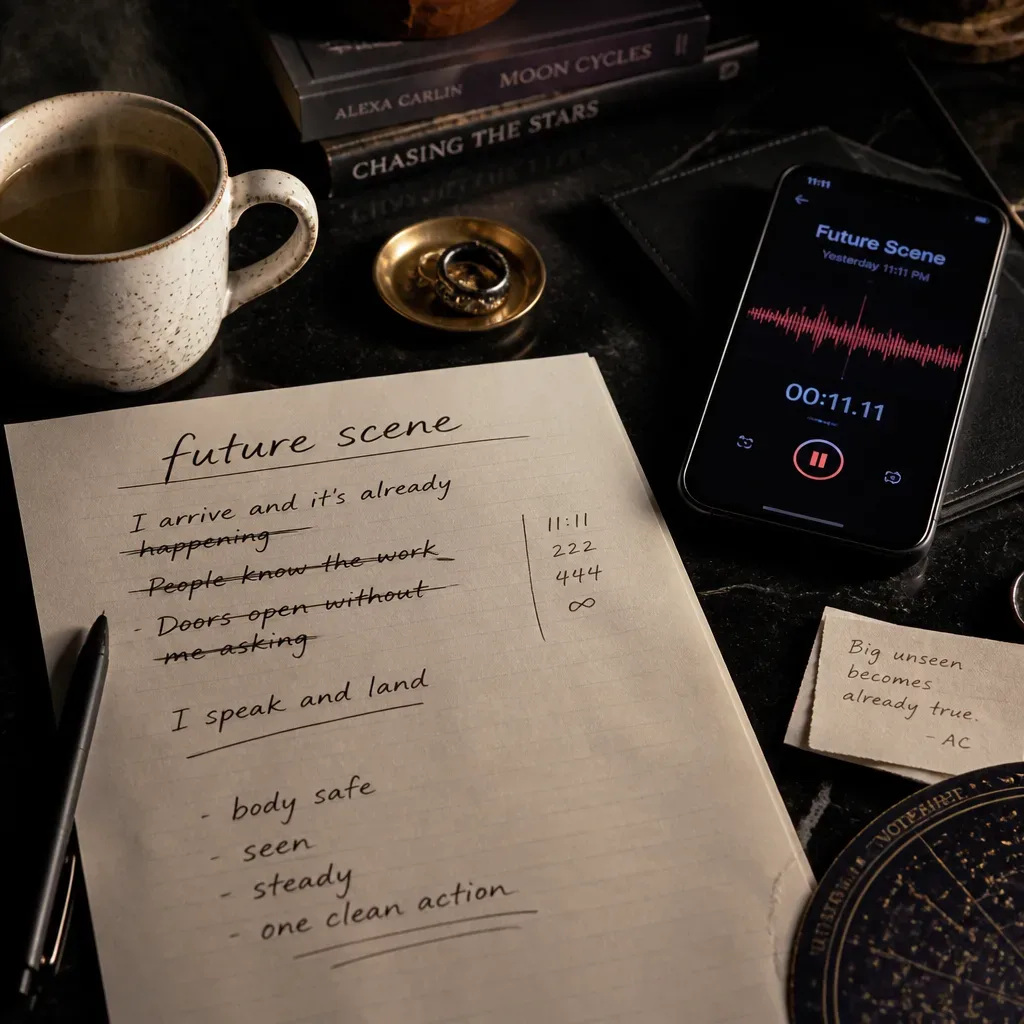 MOON CYCLES
ALEXA CARLIN
CHASING THE STARS
11:11
Future Scene
Yesterday 11:11 PM
00:11.11
future scene
I arrive and it's already
happening
People know the work
- Doors open without
me asking
I speak and land
- body safe
- seen
- steady
- one clean action
11:11
222
444
∞
Big unseen
becomes
already true.
- AC